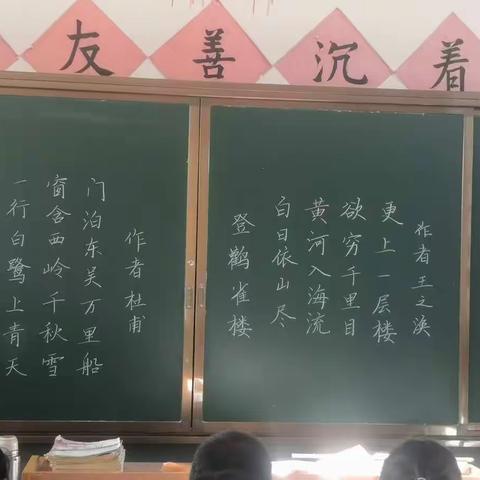 友善沉着
一行白鹭上青天
窗含西岭千秋雪
门泊东吴万里船
作者杜甫
登鹳雀楼
白日依山尽
黄河入海流
欲穷千里目
更上一层楼
作者王之涣